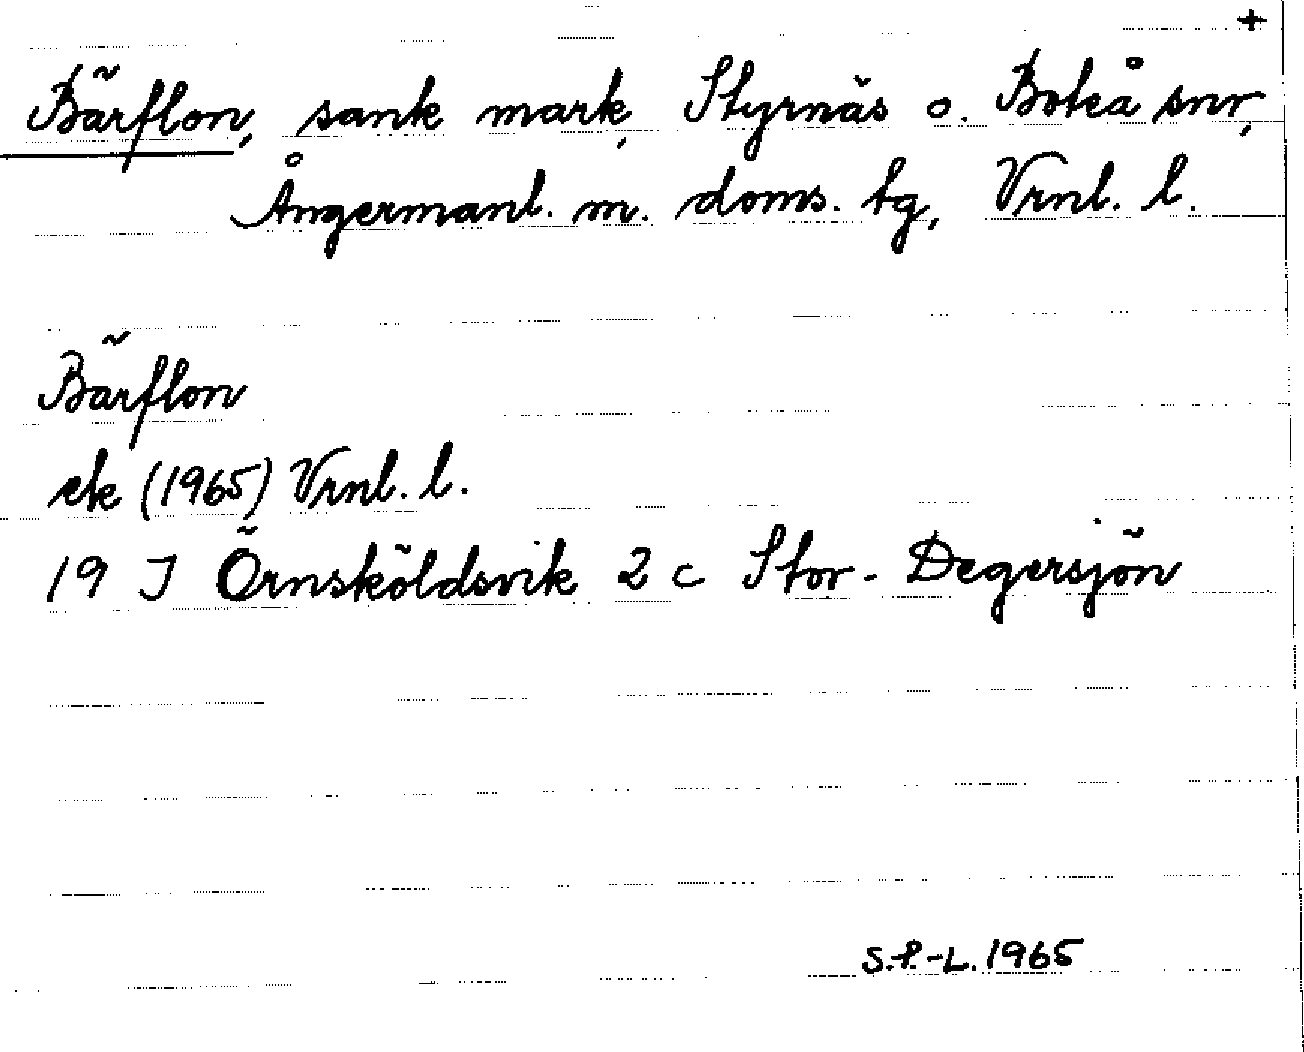 +
Bärflon, sank mark, Styrnäs o. Boteå snr,
Ångermanl. m. doms. tg, Vrnl. l.
Bärflon
ek (1965) Vrnl. l.
19 J Örnsköldsvik 2 c Stor-Degersjön
S.P.-L. 1965